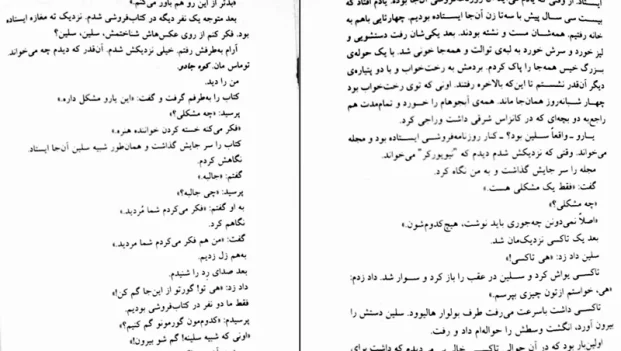 «بدتر از این رو هم باور می‌کنم.»
بعد متوجه یک نفر دیگه در کتاب‌فروشی شدم. نزدیک ته مغازه ایستاده
بود. فکر کنم از روی عکس‌هاش شناختمش، سلین، سلین؟
آرام به‌طرفش رفتم. خیلی نزدیکش شدم. آن‌قدر که دیدم چه می‌خواند
توماس مان. کوه جادو.
من را دید.
کتاب را به‌طرفم گرفت و گفت: «این یارو مشکل داره.»
پرسید: «چه مشکلی؟»
«فکر می‌کنه خسته کردن خواننده هنره.»
کتاب را سر جایش گذاشت و همان‌طور شبیه سلین آن‌جا ایستاد.
نگاهش کردم.
گفتم: «جالبه.»
پرسید: «چی جالبه؟»
به او گفتم: «فکر می‌کردم شما مُردید.»
نگاهم کرد.
گفت: «من هم فکر می‌کردم شما مردید.»
به‌هم زل زدیم.
بعد صدای رِد را شنیدم.
داد زد: «هی تو! گورتو از این‌جا گم کن!»
فقط ما دو نفر در کتاب‌فروشی بودیم.
پرسیدم: «کدوممون گورمونو گم کنیم؟»
«اونی که شبیه سلینه! گم شو بیرون!»
بیست سی سال پیش با سه‌تا زن آن‌جا ایستاده بودیم. چهارتایی باهم به
خانه رفتیم. همه‌شان مست و نشئه بودند. بعد یکی‌شان رفت دستشویی و
لیز خورد و سرش خورد به لبه‌ی توالت و همه‌جا خونی شد. با یک حوله‌ی
بزرگ خیس همه‌جا را پاک کردم. بردمش به رخت‌خواب و با دو پتیاره‌ی
دیگر آن‌قدر نشستم تا این‌که بالاخره رفتند. اونی که توی رخت‌خواب بود
چهار شبانه‌روز همان‌جا ماند. همه‌ی آبجوهام را خورد و تمام‌مدت هم
راجع‌به دو بچه‌ای که در کانزاس شرقی داشت وراجی کرد.
یارو ـ واقعاً سلین بود؟ ـ کنار روزنامه‌فروشی ایستاده بود و مجله
می‌خواند. وقتی که نزدیکش شدم دیدم که "نیویورکر" می‌خواند.
مجله را سر جایش گذاشت و به من نگاه کرد.
گفت: «فقط یک مشکلی هست.»
«چه مشکلی؟»
«اصلاً نمی‌دونن چه‌جوری باید نوشت، هیچ‌کدومشون.»
بعد یک تاکسی نزدیک‌مان شد.
سلین داد زد: «هی تاکسی!»
تاکسی یواش کرد و سلین در عقب را باز کرد و سوار شد. داد زدم:
«هی، خواستم ازتون چیزی بپرسم.»
تاکسی داشت باسرعت می‌رفت طرف بولوار هالیوود. سلین دستش را
بیرون آورد، انگشت وسطش را حواله‌ام داد و رفت.